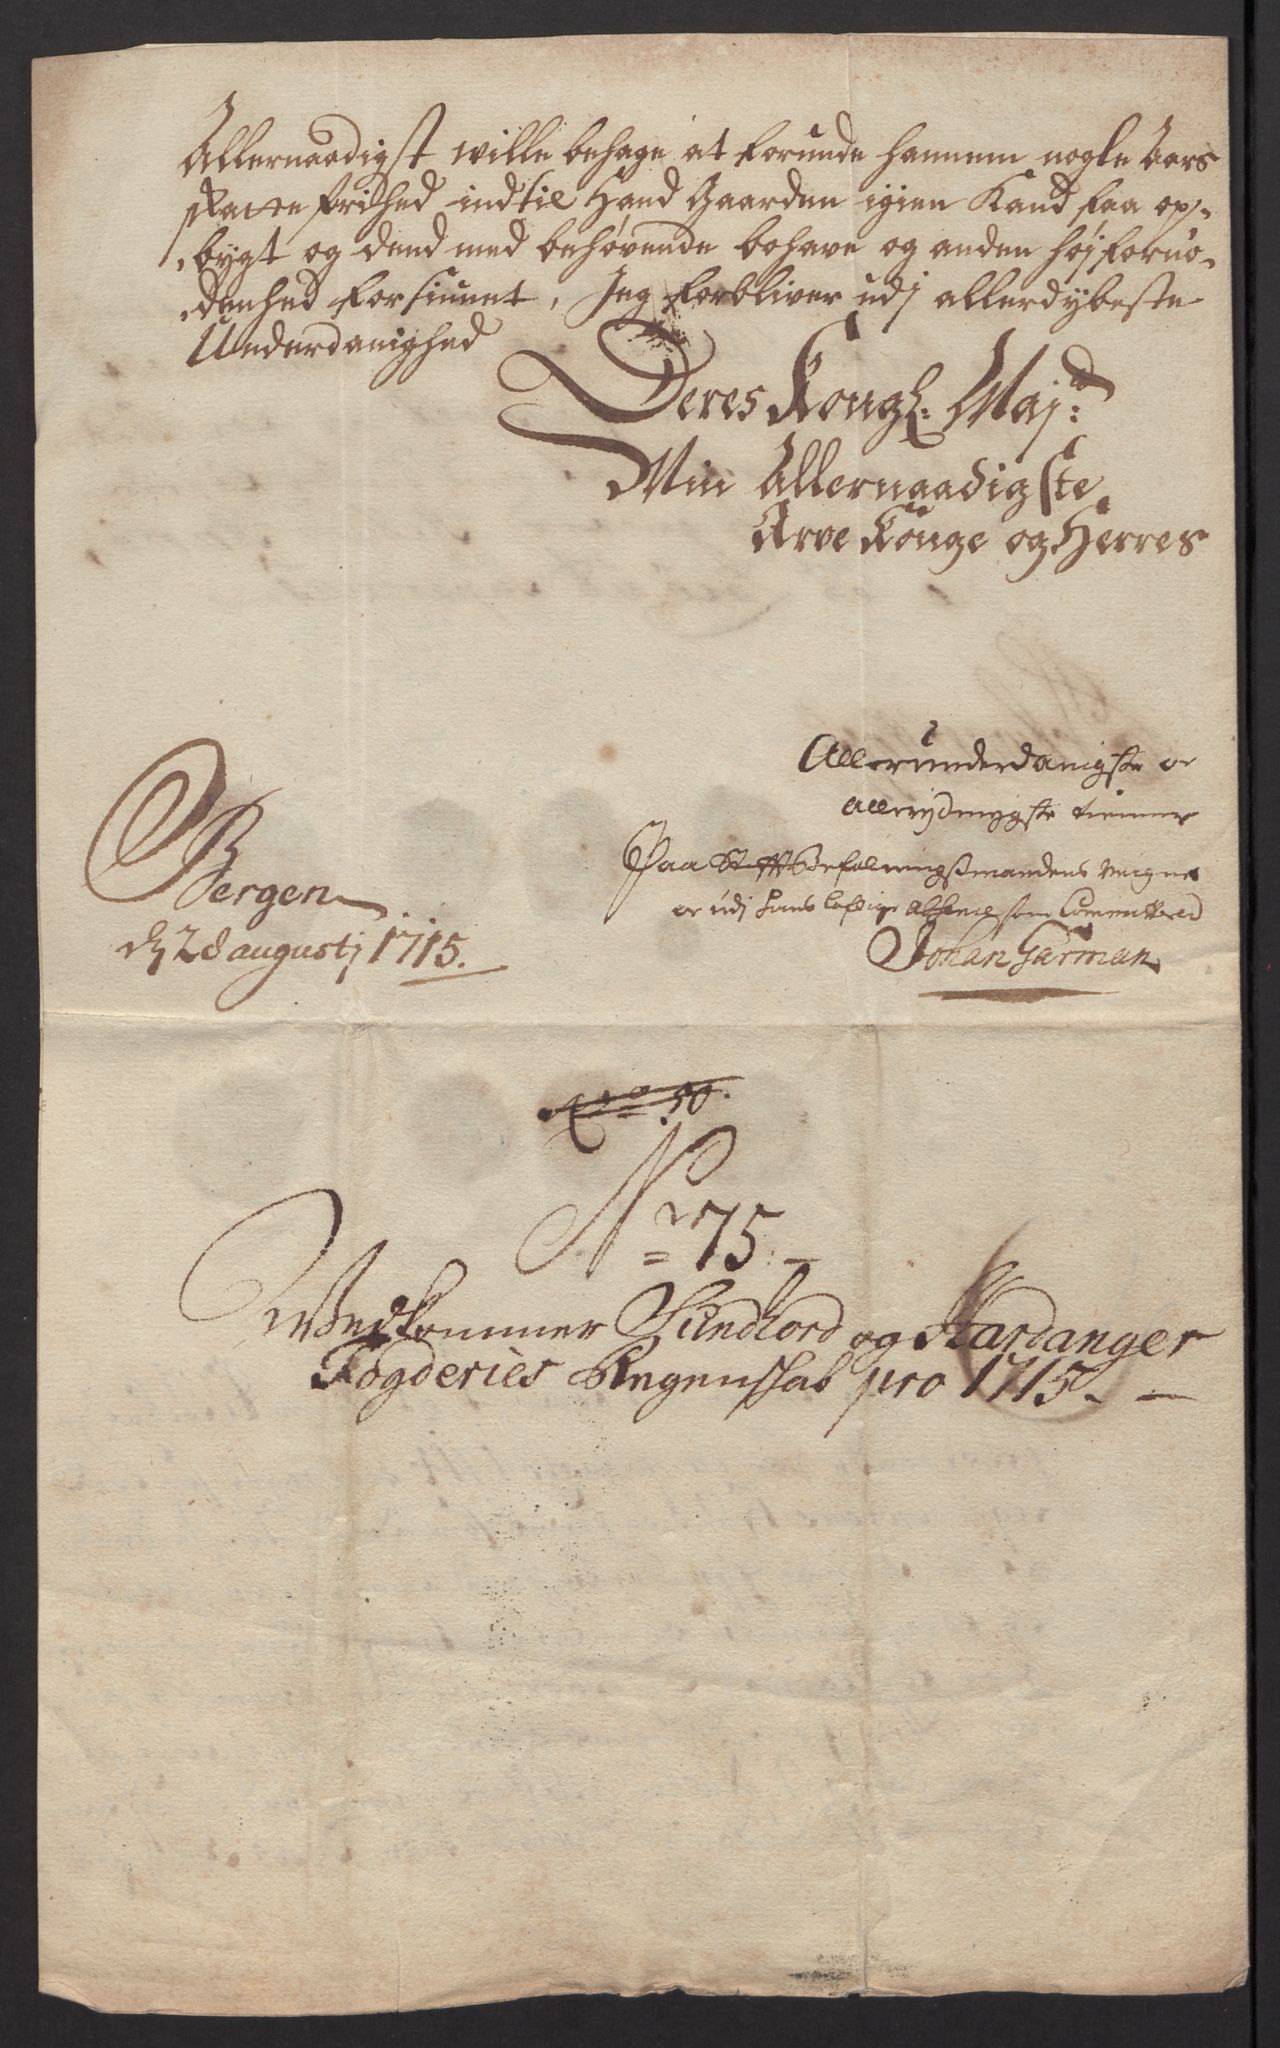 Allernaadigst wille behage at forunde hannem nogle Aars
skatte frihed indtil Hand Gaarden igien Kand faa op-
bygt og dend med behøvende bohave og anden høj fornø-
denhed forsiunet, Jeg forbliver udj allerdybeste
Underdanighed
Deres Kongl: Maj:ts
Min Allernaadigste
Arve Konge og Herres
Allerunderdanigste og
allerydmygste tienner
Paa Stifft Befalningsmandens Vegne
og udj hans lovlige absence som Committered
Johan Garman
Bergen
d 28 augustj 1715.
No 50.
Nr 75.
Vedkommer Sundhord og Hardanger
Fogderies Regenskab pro 1715.